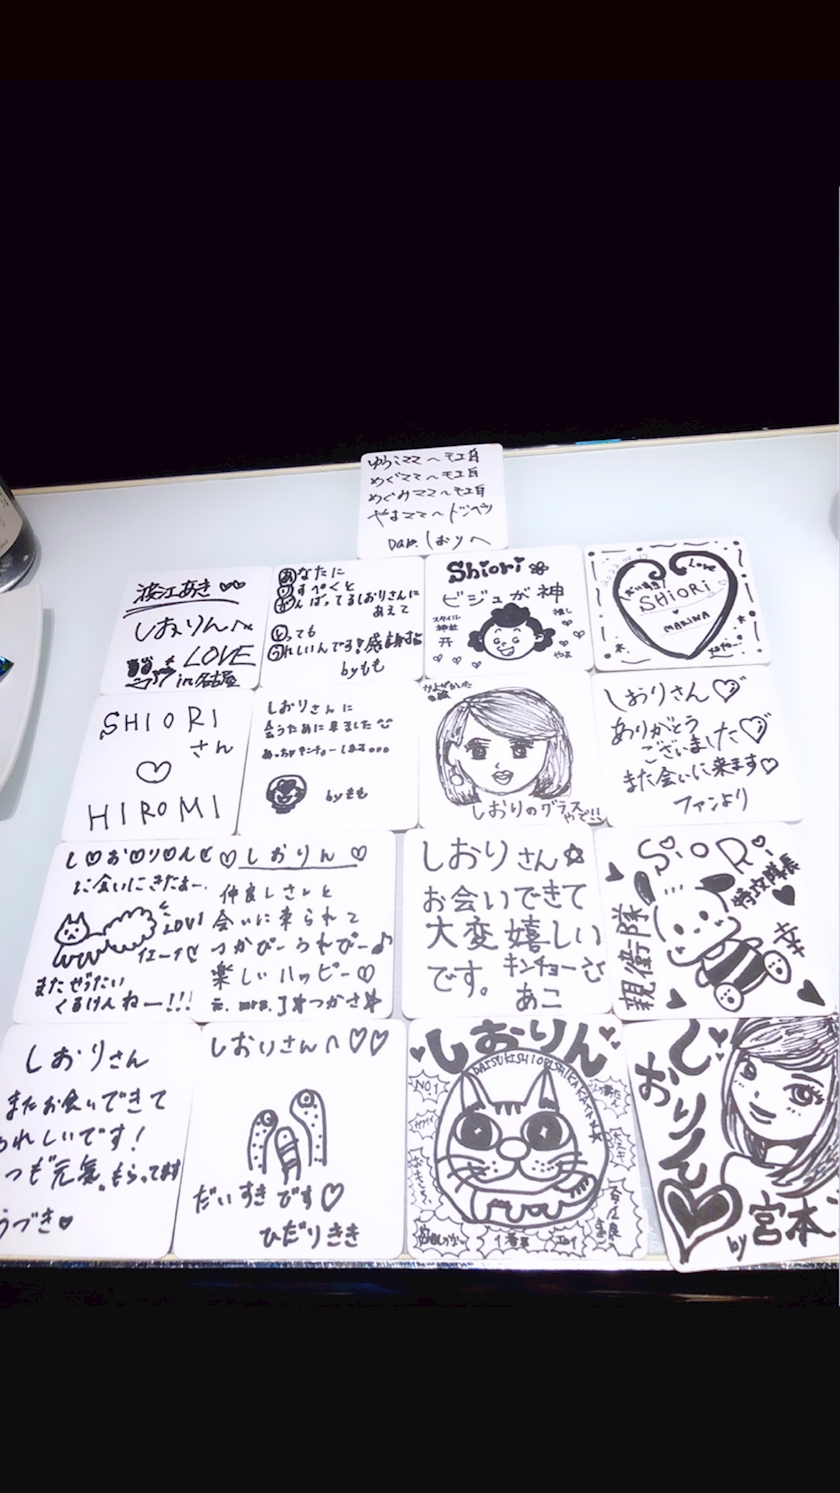 ゆうこママへモエ自
めぐママへモエ自
めぐみママへモエ自
やまママへドンペリ
Dar.しおりへ
浪江あき♡♡
しおりん
LOVE
in名古屋
あなたに
りすぺくと
がんばってるしおりさんに
あえて
とっても
うれしいんです!感謝す
byもも
Shiori
ビジュが神
スタイル
神社
推し
やよ
Love
SHIORi
MARINA
SHIORI
さん
♡
HIROMI
しおりさんに
会うために来ました
めっちゃキンチョーします...
byもも
しおりのグラス
やで!!
しおりさん♡
ありがとう
ございました♡
また会いに来ます♡
ファンより
し♡お♡り♡ん
に会いにきたよー.
LOVE
イエーイ
またぜったい
くるけんねー!!!
♡しおりん♡
仲良しさんと
会いに来られて
つかぴーうれぴー♪
楽しいハッピー♡
元.mrs.J つかさ
しおりさん☆
お会いできて
大変嬉しい
です。キンチョー
あこ
SiORi
特攻隊長
親衛隊
幸
しおりさん
またお会いできて
うれしいです!
つも元気もらってます
うづき♥
しおりさんへ♡♡
だいすきです♡
ひだりきき
しおりん
DAISUKISHIORISHIKAKATAN
NO1
しおりん♡
by宮本